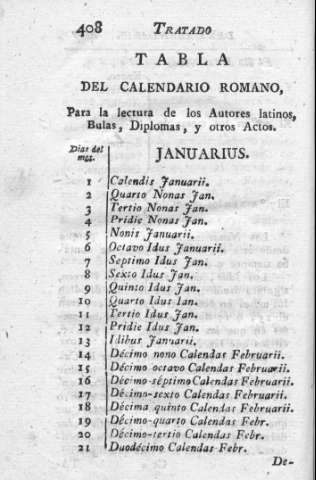 408 TRATADO
TABLA
DEL CALENDARIO ROMANO,
Para la lectura de los Autores latinos,
Bulas, Diplomas, y otros Actos.
Dias del mes. JANUARIUS.
1 Calendis Januarii.
2 Quarto Nonas Jan.
3 Tertio Nonas Jan.
4 Pridie Nonas Jan.
5 Nonis Januarii.
6 Octavo Idus Januarii.
7 Septimo Idus Jan.
8 Sexto Idus Jan.
9 Quinto Idus Jan.
10 Quarto Idus Ian.
11 Tertio Idus Jan.
12 Pridie Idus Jan.
13 Idibus Januarii.
14 Décimo nono Calendas Februarii.
15 Décimo octavo Calendas Februarii.
16 Décimo-séptimo Calendas Februarii.
17 Décimo-sexto Calendas Februarii.
18 Décima quinto Calendas Februarii.
19 Décimo-quarto Calendas Febr.
20 Décimo-tertio Calendas Febr.
21 Duodécimo Calendas Febr.
De-